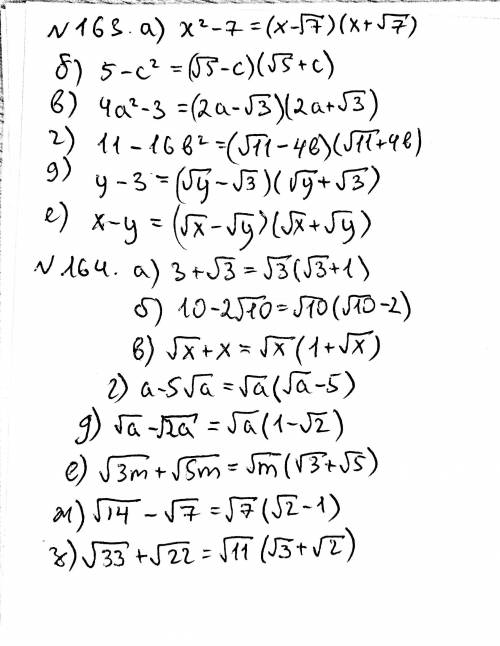 №163. а) x²-7=(x-√7)(x+√7)
б) 5-c²=(√5-c)(√5+c)
в) 4a²-3=(2a-√3)(2a+√3)
г) 11-16b²=(√11-4b)(√11+4b)
д) y-3=(√y-√3)(√y+√3)
е) x-y=(√x-√y)(√x+√y)
№164. а) 3+√3=√3(√3+1)
б) 10-2√10=√10(√10-2)
в) √x+x=√x(1+√x)
г) a-5√a=√a(√a-5)
д) √a-√2a=√a(1-√2)
е) √3m+√5m=√m(√3+√5)
ж) √14-√7=√7(√2-1)
з) √33+√22=√11(√3+√2)